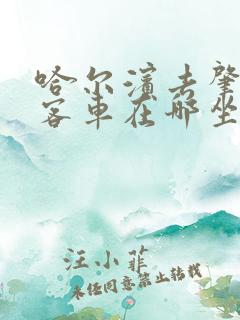 哈尔滨去肇
客车在哪坐
汪小菲
未经同意禁止转载